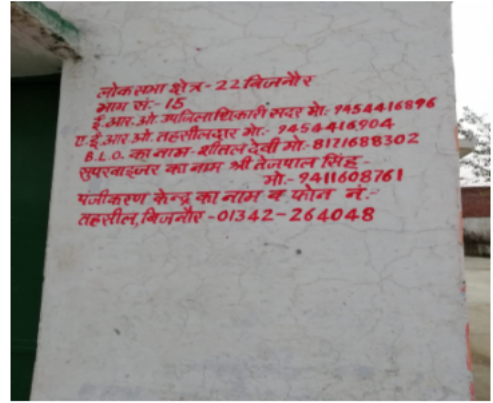 लोकसभा क्षेत्र-22 बिजनौर
भाग सं:- 15
ई.आर.ओ. उपजिलाधिकारी सदर मो:- 9454416896
ए.ई.आर.ओ. तहसीलदार मो:- 9454416904
B.L.O. का नाम- शीतल देवी मो:-8171688302
सुपरवाइजर का नाम श्री तेजपाल सिंह-
मो.- 9411608761
पंजीकरण केन्द्र का नाम व फोन नं.:-
तहसील, बिजनौर -01342-264048